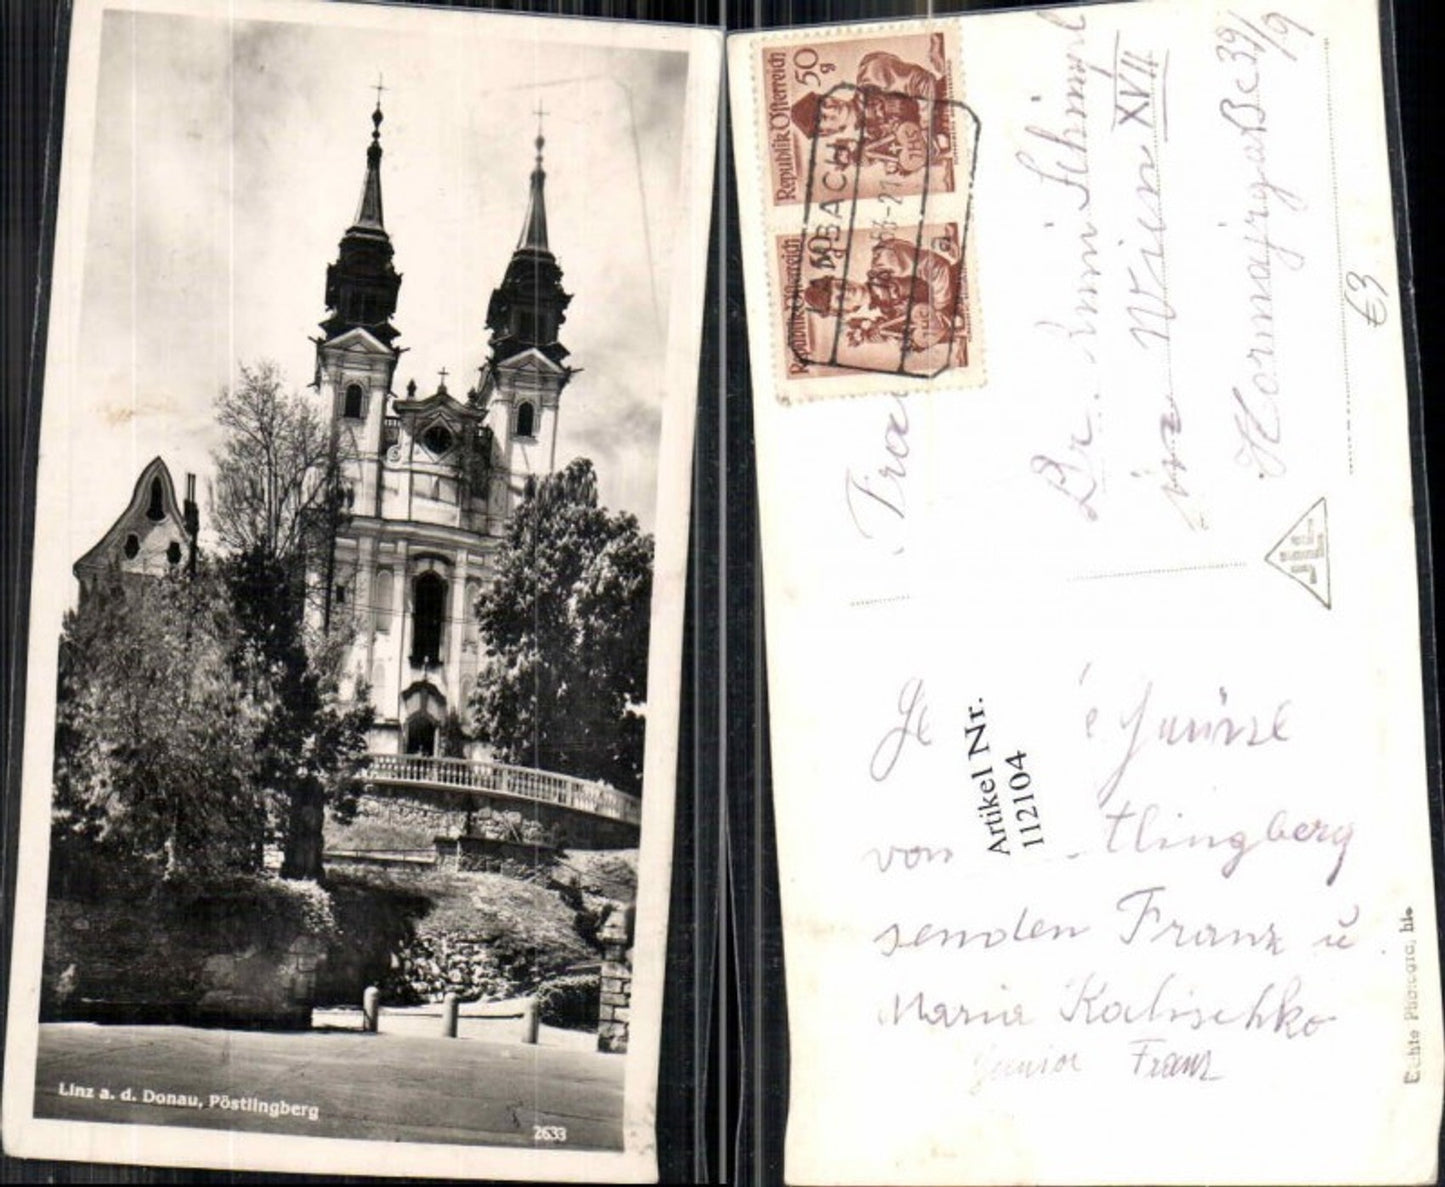 Linz a. d. Donau, Pöstlingberg
2633
Republik Österreich
50
g
IHS
Republik Österreich
50
IHS
AMBACH
a
Dr.
in Wien XVII
Hormayrgasse 39/
19
€3
Artikel Nr.
112104
von tlingberg
senden Franz u
Maria Kalischko
Junior Franz
Echte Photogr.